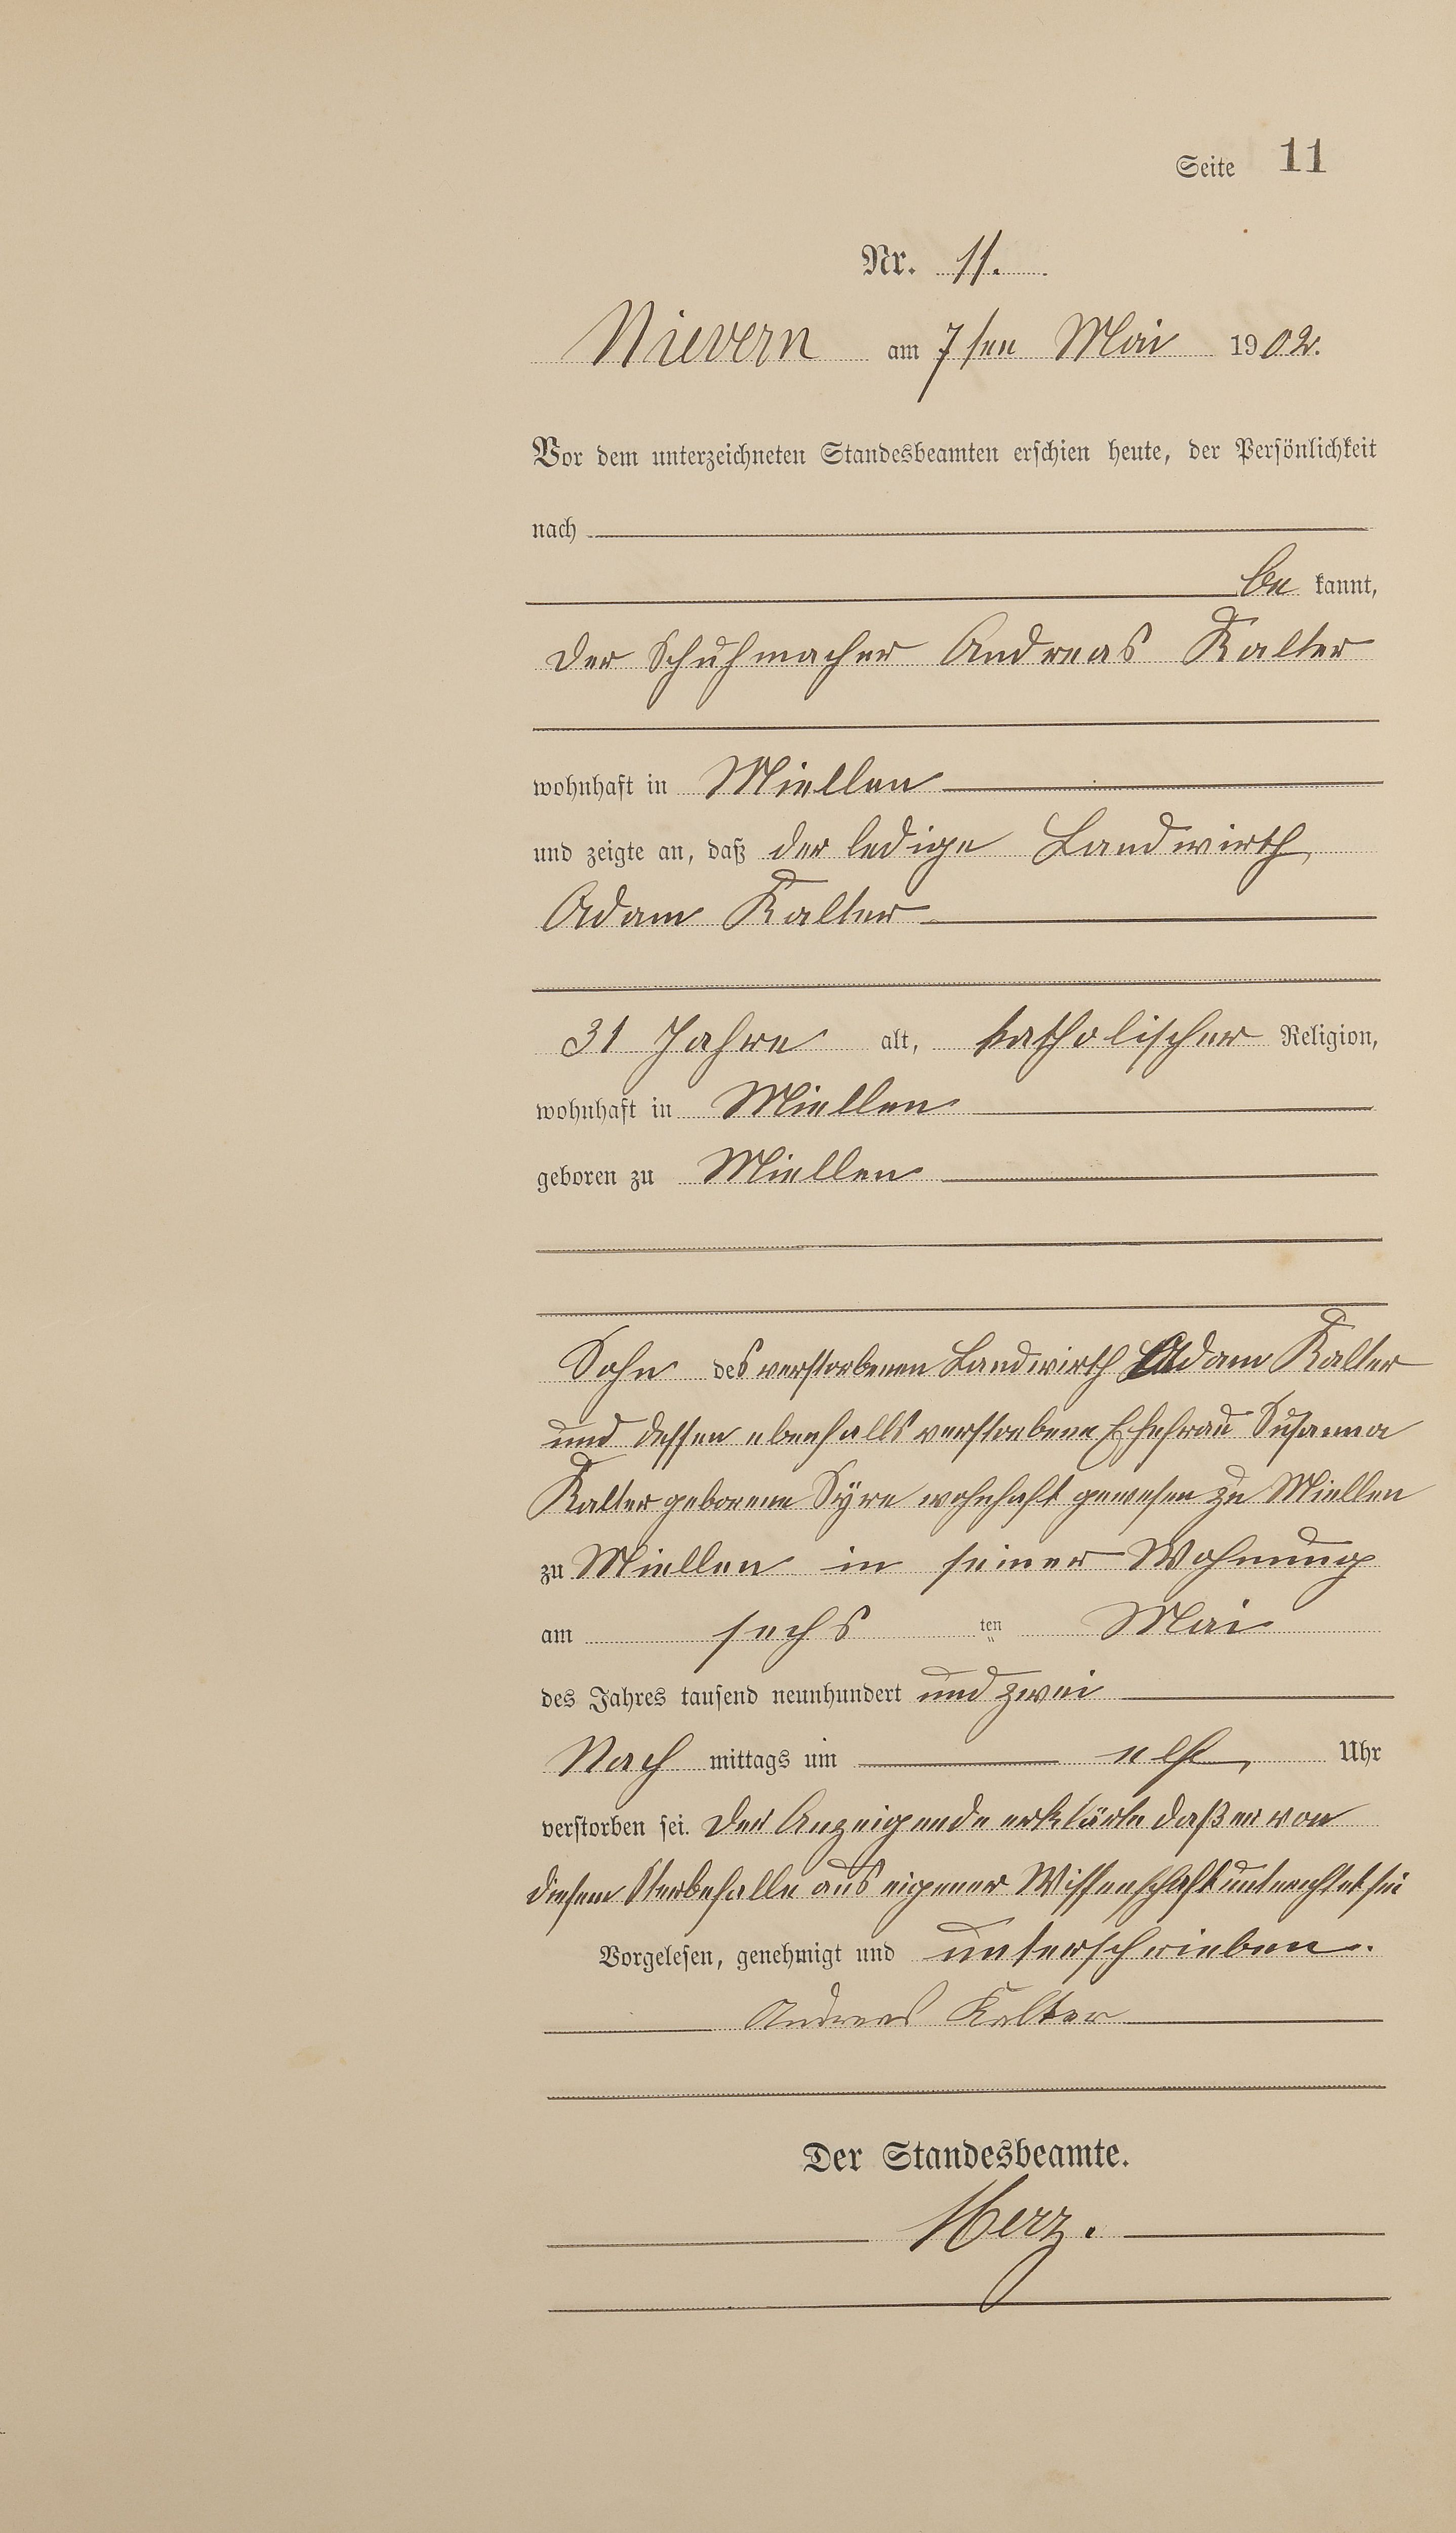 Seite 11
Nr. 11.
Nievern am 7ten Mai 1902.
Vor dem unterzeichneten Standesbeamten erschien heute, der Persönlichkeit
nach
be kannt,
der Schuhmacher Andreas Kalter
wohnhaft in Miellen
und zeigte an, daß der ledige Landwirth
Adam Kalter
31 Jahre alt, katholischer Religion,
wohnhaft in Miellen
geboren zu Miellen
Sohn des verstorbenen Landwirth Adam Kalter
und dessen ebenfalls verstorbene Ehefrau Susanna
Kalter geborene Syre wohnhaft gewesen zu Miellen
zu Miellen in seiner Wohnung
am sechs ten Mai
des Jahres tausend neunhundert und zwei
Nach mittags um elf Uhr
verstorben sei. Der Anzeigende erklärte daß er von
diesem Sterbefalle aus eigener Wissenschaft unterrichtet sei
Vorgelesen, genehmigt und unterschrieben.
Andreas Kalter
Der Standesbeamte.
Herz.